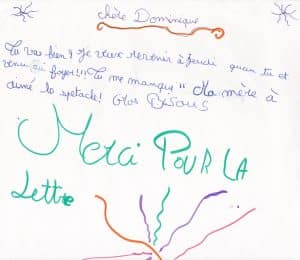 chère Dominique
Tu vas bien? Je veux revenir à jeudi quan tu et
venu oui foyer!!! Tu me manque!! Ma mère à
aimé le spetacle! Gros Bisous
Merci POUR LA
Lettre